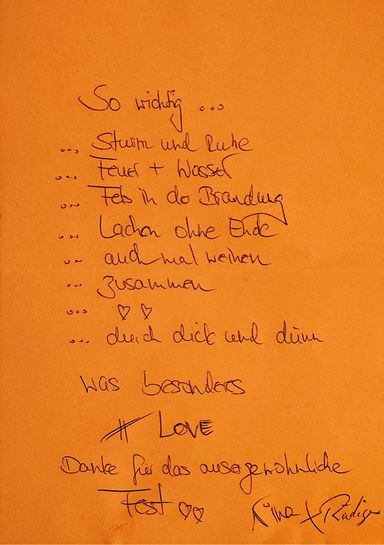 So wichtig ...
... Sturm und Ruhe
... Feuer + Wasser
... Fels in der Brandung
... Lachen ohne Ende
... auch mal weinen
... zusammen
... ♡ ♡
... durch dick und dünn
was besonders
# LOVE
Danke für das ausergewöhnliche
Fest ♡♡ + Rüdiger